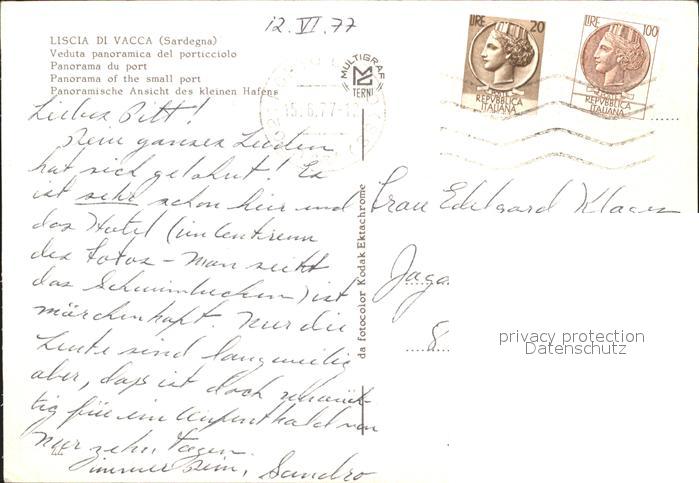 12. VI. 77
LISCIA DI VACCA (Sardegna)
Veduta panoramica del porticciolo
Panorama du port
Panorama of the small port
Panoramische Ansicht des kleinen Hafens
MULTIGRAF
TERNI
LIRE 20
POSTE
REPVBBLICA
ITALIANA
LIRE 100
POSTE
REPVBBLICA
ITALIANA
15.6.77
Liebes Pitt!
Mein ganzes Leiden
hat sich gelohnt! Es
ist sehr schön hier und
das Hotel (im Zentrum
des Fotos - Man sieht
das Schwimbecken) ist
märchenhaft. Nur die
Leute sind langweilig
aber, das ist doch
für ein Aufenthald von
nur zehn Tagen.
Immer Dein, Sandro
da fotocolor Kodak Ektachrome
Frau Edelgard Klages
Jaga
8
privacy protection
Datenschutz